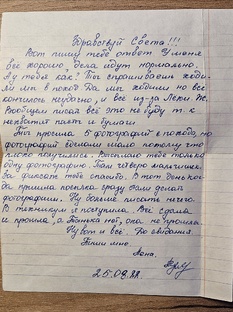 Здравствуй Света!!!
Вот пишу тебе ответ. У меня
всё хорошо, дела идут нормально.
А у тебя как? Ты спрашиваешь ходи-
ли мы в поход. Да мы ходили но всё
кончилось неудачно, и всё из-за Лены Ж.
Вообщем писал всё это не буду т. к
нехватит пасты и бумаги
Ты просила 5 фотографий с похода, но
фотографий сделали мало потому что
плохо получились. Высылаю тебе только
одну фотографию. Нам четверо мальчишек
за фиксаж тебе спасибо. В тот день ког-
да пришла посылка сразу сели делать
фотографии. Ну больше писать нечего.
В техникум я поступила. Всё сдала
и прошла, а Танька нет, она не прошла.
Ну вот и всё. До свидания.
Пиши мне.
Лена.
25.09.